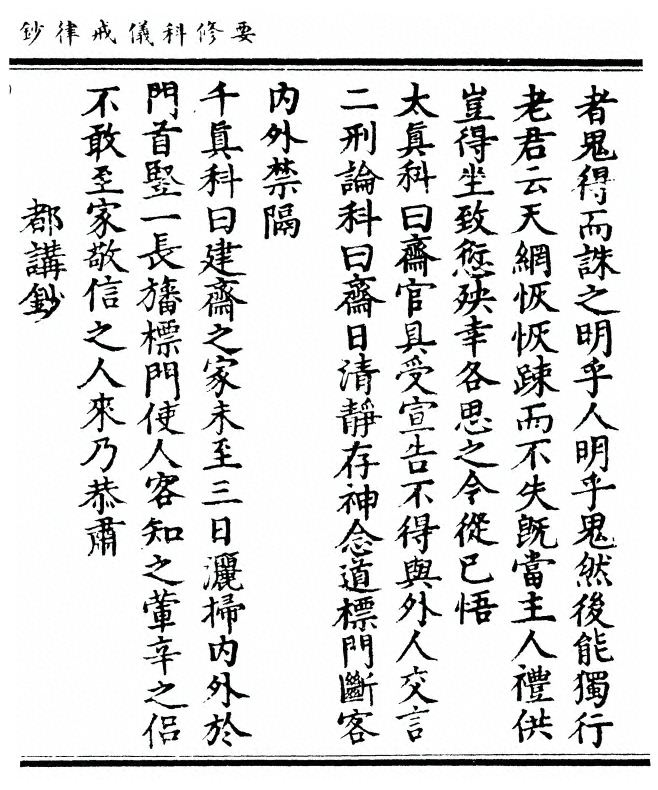 要修科儀戒律鈔
者鬼得而誅之明乎人明乎鬼然後能獨行
老君云天網恢恢踈而不失旣當主人禮供
豈得坐致愆殃幸各思之令從已悟
太眞科曰齋官具受宣告不得與外人交言
二刑論科曰齋日清靜存神念道標門斷客
内外禁隔
千眞科曰建齋之家未至三日灑掃内外於
門首竪一長旛標門使人客知之葷辛之侣
不敢至家敬信之人來乃恭肅
都講鈔